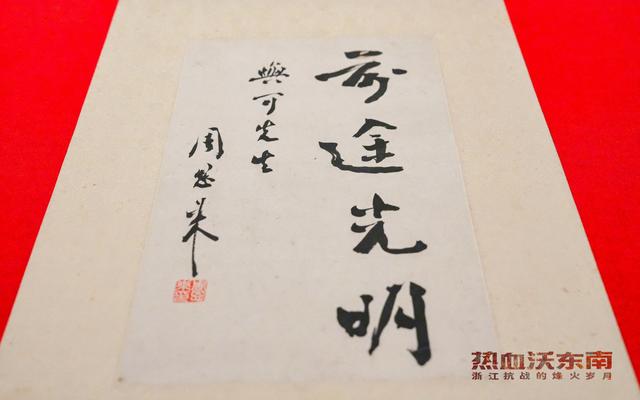 前途光明
與可先生
周恩来
热血沃东南
浙江抗战的烽火岁月